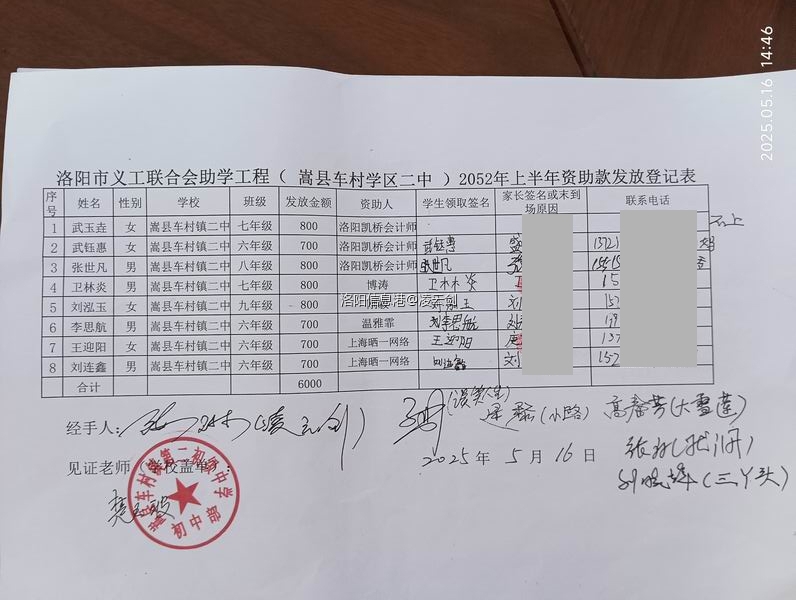 2025.05.16 14:46
洛阳市义工联合会助学工程（ 嵩县车村学区二中 ）2052年上半年资助款发放登记表
序号 姓名 性别 学校 班级 发放金额 资助人 学生领取签名 家长签名或未到场原因 联系电话
1 武玉垚 女 嵩县车村镇二中 七年级 800 洛阳凯桥会计师
2 武钰惠 女 嵩县车村镇二中 六年级 700 洛阳凯桥会计师 武钰惠
3 张世凡 男 嵩县车村镇二中 八年级 800 洛阳凯桥会计师 张世凡
4 卫林炎 男 嵩县车村镇二中 七年级 800 博涛 卫林炎 15
5 刘泓玉 女 嵩县车村镇二中 九年级 800 刘泓玉 刘 157
6 李思航 男 嵩县车村镇二中 六年级 700 温雅霏 李思航
7 王迎阳 女 嵩县车村镇二中 六年级 700 上海晒一网络 王迎阳 137
8 刘连鑫 男 嵩县车村镇二中 六年级 700 上海晒一网络 刘连鑫 刘 152
合计 6000
洛阳信息港@凌云剑
经手人： (凌云剑) (小路) 高春芳(大雪莲)
见证老师（学校盖单）： 2025 年 5 月 16 日
(三丫头)
嵩县车村镇第二初级中学
初中部